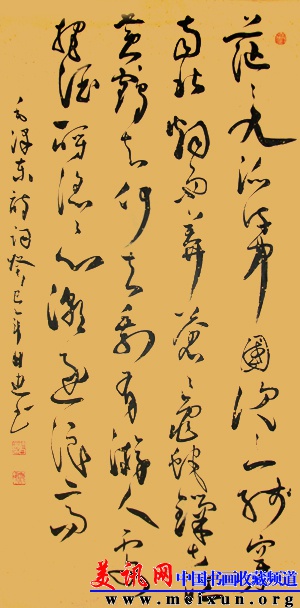 茫々九派流中國沉々一线穿
南北烟雨莽苍々龟蛇锁大江
黄鹤知何去剩有游人处
把酒酹滔々心潮逐浪高
毛泽东诗词癸巳年甘迪书
美讯网 中国书画收藏频道
www.meixun.org